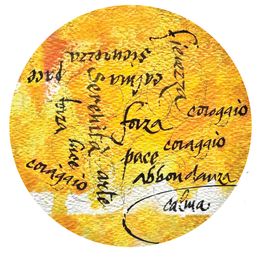 sicurezza
calma
sicurezza
pace
serenità
coraggio
forza
forza
coraggio
pace
luce
coraggio
abbondanza
arte
calma